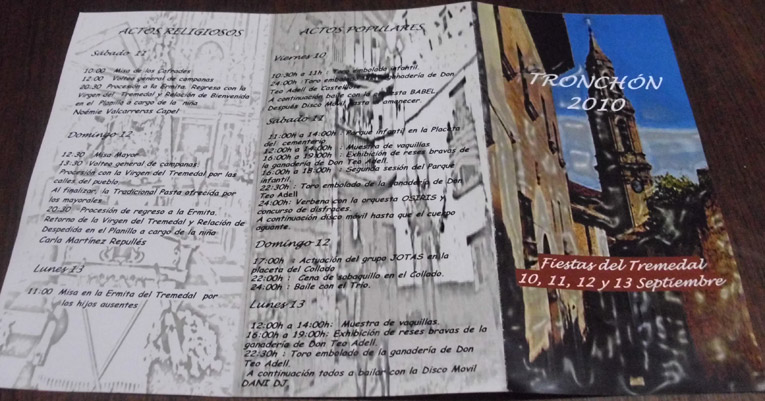 ACTOS RELIGIOSOS
Sábado 11
10:00 Misa de los Cofrades
12:00 Volteo general de campanas
20:30 Procesión a la Ermita. Regreso con la
Virgen del Tremedal y Relación de Bienvenida
en el Planillo a cargo de la niña
Noémie Valcarreras Capel
Domingo 12
12:30 Misa Mayor
13:30 Volteo general de campanas.
Procesión con la Virgen del Tremedal por las
calles del pueblo
Al finalizar, la Tradicional Pasta ofrecida por
los mayorales.
20:30 Procesión de regreso a la Ermita.
Retorno de la Virgen del Tremedal y Relación de
Despedida en el Planillo a cargo de la niña
Carla Martínez Repullés
Lunes 13
11:00 Misa en la Ermita del Tremedal por
los hijos ausentes
ACTOS POPULARES
Viernes 10
10:30h a 11h Embolada infantil.
24:00h :Toro embolado ganadería de Don
Teo Adell de Castellote
A continuación baile con la orquesta BABEL.
Después Disco Móvil hasta amanecer.
Sábado 11
11:00h a 14:00h: Parque infantil en la Placeta
del cementerio.
12:00h a 14:00h : Muestra de vaquillas
16:00h a 19:00h: Exhibición de reses bravas de
la ganadería de Don Teo Adell.
16:00h a 18:00h : Segunda sesión del Parque
infantil.
22:30h : Toro embolado de la ganadería de Don
Teo Adell
24:00h: Verbena con la orquesta OSIRIS y
concurso de disfraces.
A continuación disco móvil hasta que el cuerpo
aguante.
Domingo 12
17:00h : Actuación del grupo JOTAS en la
placeta del Collado
22:00h : Cena de sobaquillo en el Collado.
24:00h : Baile con el Trío.
Lunes 13
12:00h a 14:00h: Muestra de vaquillas.
16:00h a 19:00h: Exhibición de reses bravas de la
ganadería de Don Teo Adell.
22:30h : Toro embolado de la ganadería de Don
Teo Adell.
A continuación todos a bailar con la Disco Movil
DANI DJ.
TRONCHÓN
2010
Fiestas del Tremedal
10, 11, 12 y 13 Septiembre